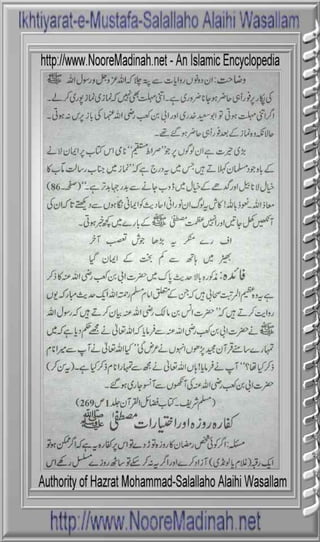 Ikhtiyarat-e-Mustafa-Salallaho Alaihi Wasallam
http://www.NooreMadinah.net - An Islamic Encyclopedia
وضاحت: ان دونوں روایات سے پتہ چلا کہ اللہ عزوجل و رسول اللہ ﷺ
کی پکار پر فوراً ہی حاضر ہو جانا ضروری ہے۔ اتنی مہلت بھی نہیں کہ نمازی نماز پوری کر لے۔
اگر اتنی مہلت ہوتی تو ابو سعید خدری اور ابی بن کعب رضی اللہ عنہما کی باز پرس نہ ہوتی۔
حالانکہ وہ نماز کے بعد فوراً ہی حاضر ہو گئے تھے۔
بڑی حیرت ہے ان لوگوں پر جو "صراط مستقیم" نامی اس کتاب پر ایمان لانے
کے باوجود مسلمان کہلاتے ہیں جس میں یہ درج ہے کہ "نماز میں جناب رسالت مآب کا
خیال لانا بیل اور گدھے کے خیال میں ڈوب جانے سے بدرجہا بدتر ہے۔" (صفحہ 86)
معاذ اللہ، نعوذ باللہ! کاش یہ لوگ ان نورانی احادیث کو ایمانی نگاہوں سے دیکھتے تاکہ ان کی
آنکھیں کھل جائیں اور انہیں عظمت مصطفیٰ ﷺ کے بارے میں کچھ خبر ہوتی۔
اف رے منکر یہ بڑھا جوش تعصب آخر
بھیڑ میں ہاتھ سے کم بخت کے ایمان گیا
فائدہ: مذکورہ بالا حدیث پاک میں حضرت ابی بن کعب رضی اللہ عنہ کا ذکر
ہے یہ وہ عظیم المرتبت صحابی ہیں کہ جن کے متعلق امام مسلم رحمۃ اللہ علیہ ایک حدیث مبارکہ یوں
روایت کرتے ہیں کہ "حضرت انس بن مالک رضی اللہ عنہ بیان کرتے ہیں کہ رسول اللہ
ﷺ نے حضرت ابی بن کعب رضی اللہ عنہ سے فرمایا کہ اللہ تعالیٰ نے مجھے حکم دیا ہے کہ میں
تمہارے سامنے قرآن مجید پڑھوں انہوں نے عرض کی "کیا اللہ تعالیٰ نے آپ سے میرا نام
ذکر کیا تھا؟" آپ نے فرمایا! ہاں اللہ تعالیٰ نے مجھ سے تمہارا نام ذکر کیا ہے۔ (یہ سن کر)
حضرت ابی بن کعب رضی اللہ عنہ کی آنکھوں سے آنسو جاری ہو گئے۔
(مسلم شریف۔ کتاب فضائل القرآن جلد 1 ص 269)
کفارہ روزہ اور اختیارات مصطفیٰ ﷺ
مسئلہ: اگر کوئی شخص رمضان کا روزہ توڑ دے تو اس پر کفارہ یہ ہے کہ اگر ممکن ہو تو
ایک رقبہ (غلام یا لونڈی) آزاد کرے اور اگر یہ نہ کر سکے تو ساٹھ روزے مسلسل رکھے اس
Authority of Hazrat Mohammad-Salallaho Alaihi Wasallam
http://www.NooreMadinah.net